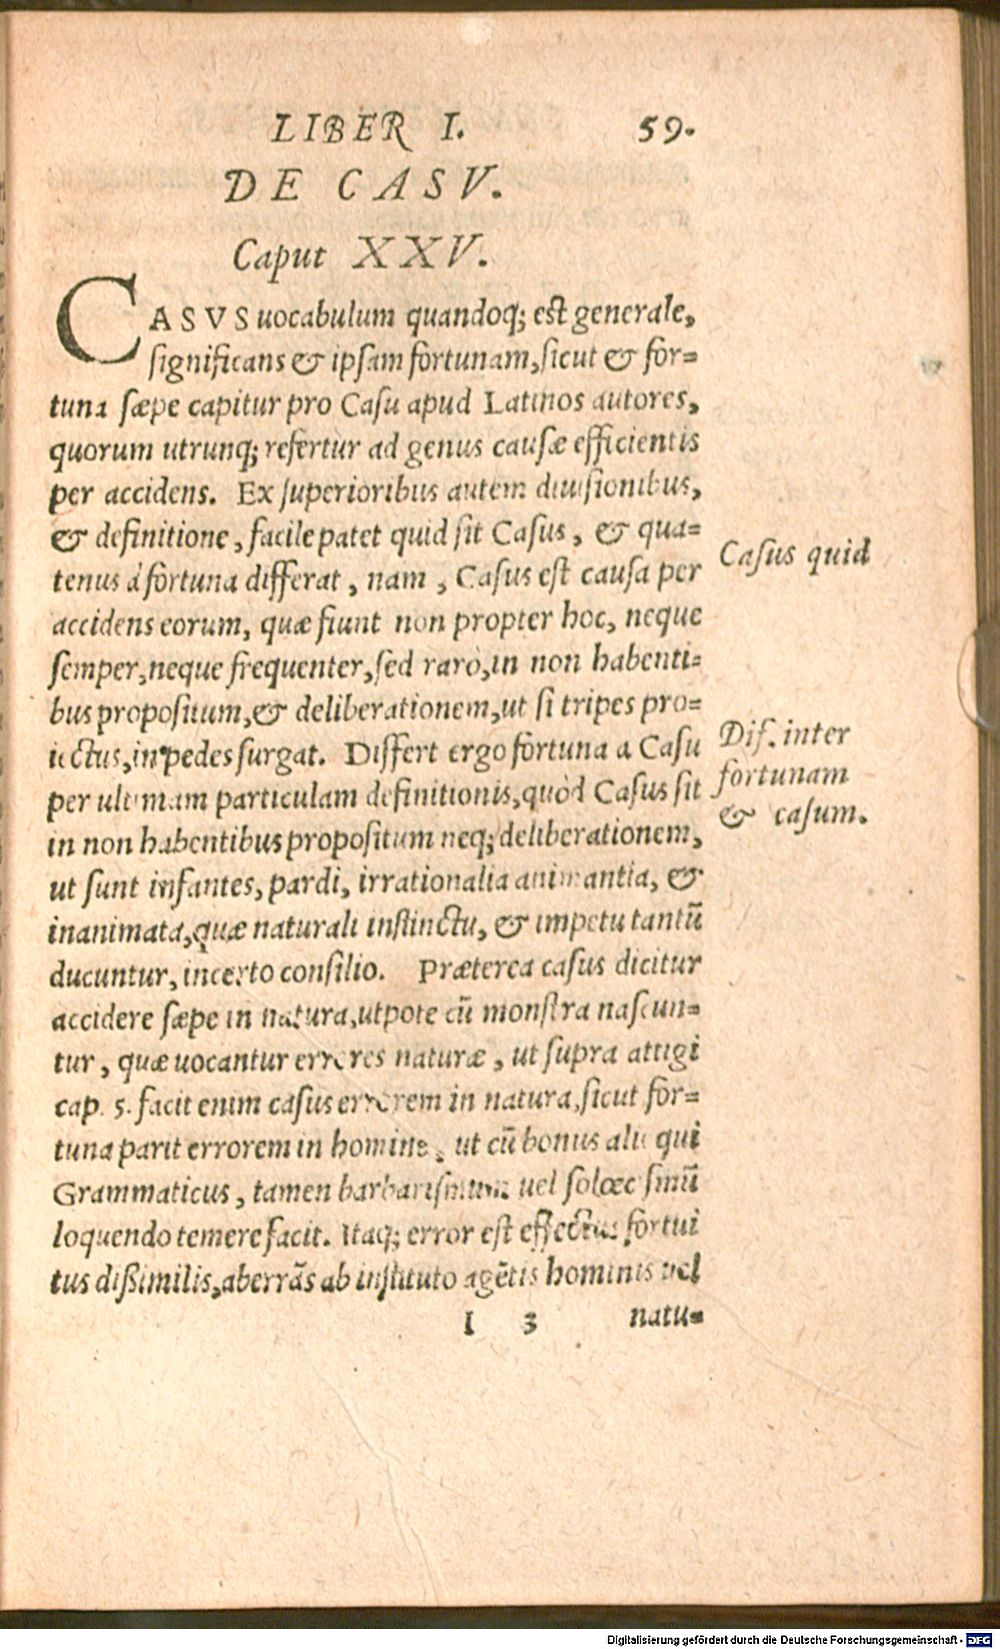 LIBER I. 59.
DE CASV.
Caput XXV.
CASVS uocabulum quandoq; est generale,
significans & ipsam fortunam, sicut & for=
tuna sæpe capitur pro Casu apud Latinos autores,
quorum utrunq; refertur ad genus causæ efficientis
per accidens. Ex superioribus autem diuisionibus,
& definitione, facile patet quid sit Casus, & qua=
tenus à fortuna differat, nam, Casus est causa per
accidens eorum, quæ fiunt non propter hoc, neque
semper, neque frequenter, sed rarò, in non habenti=
bus propositum, & deliberationem, ut si tripes pro=
iectus, in pedes surgat. Differt ergo fortuna a Casu
per ultimam particulam definitionis, quòd Casus sit
in non habentibus propositum neq; deliberationem,
ut sunt infantes, pardi, irrationalia animantia, &
inanimata, quæ naturali instinctu, & impetu tantū
ducuntur, incerto consilio. Præterea casus dicitur
accidere sæpe in natura, utpote cū monstra nascun=
tur, quæ uocantur errores naturæ, ut supra attigi
cap. 5. facit enim casus errorem in natura, sicut for=
tuna parit errorem in homine, ut cū bonus ali qui
Grammaticus, tamen barbarismum uel solœcismū
loquendo temere facit. Itaq; error est effectus fortui
tus dißimilis, aberrās ab instituto agētis hominis uel
I 3 natu=
Casus quid
Dif. inter
fortunam
& casum.
Digitalisierung gefördert durch die Deutsche Forschungsgemeinschaft - DFG